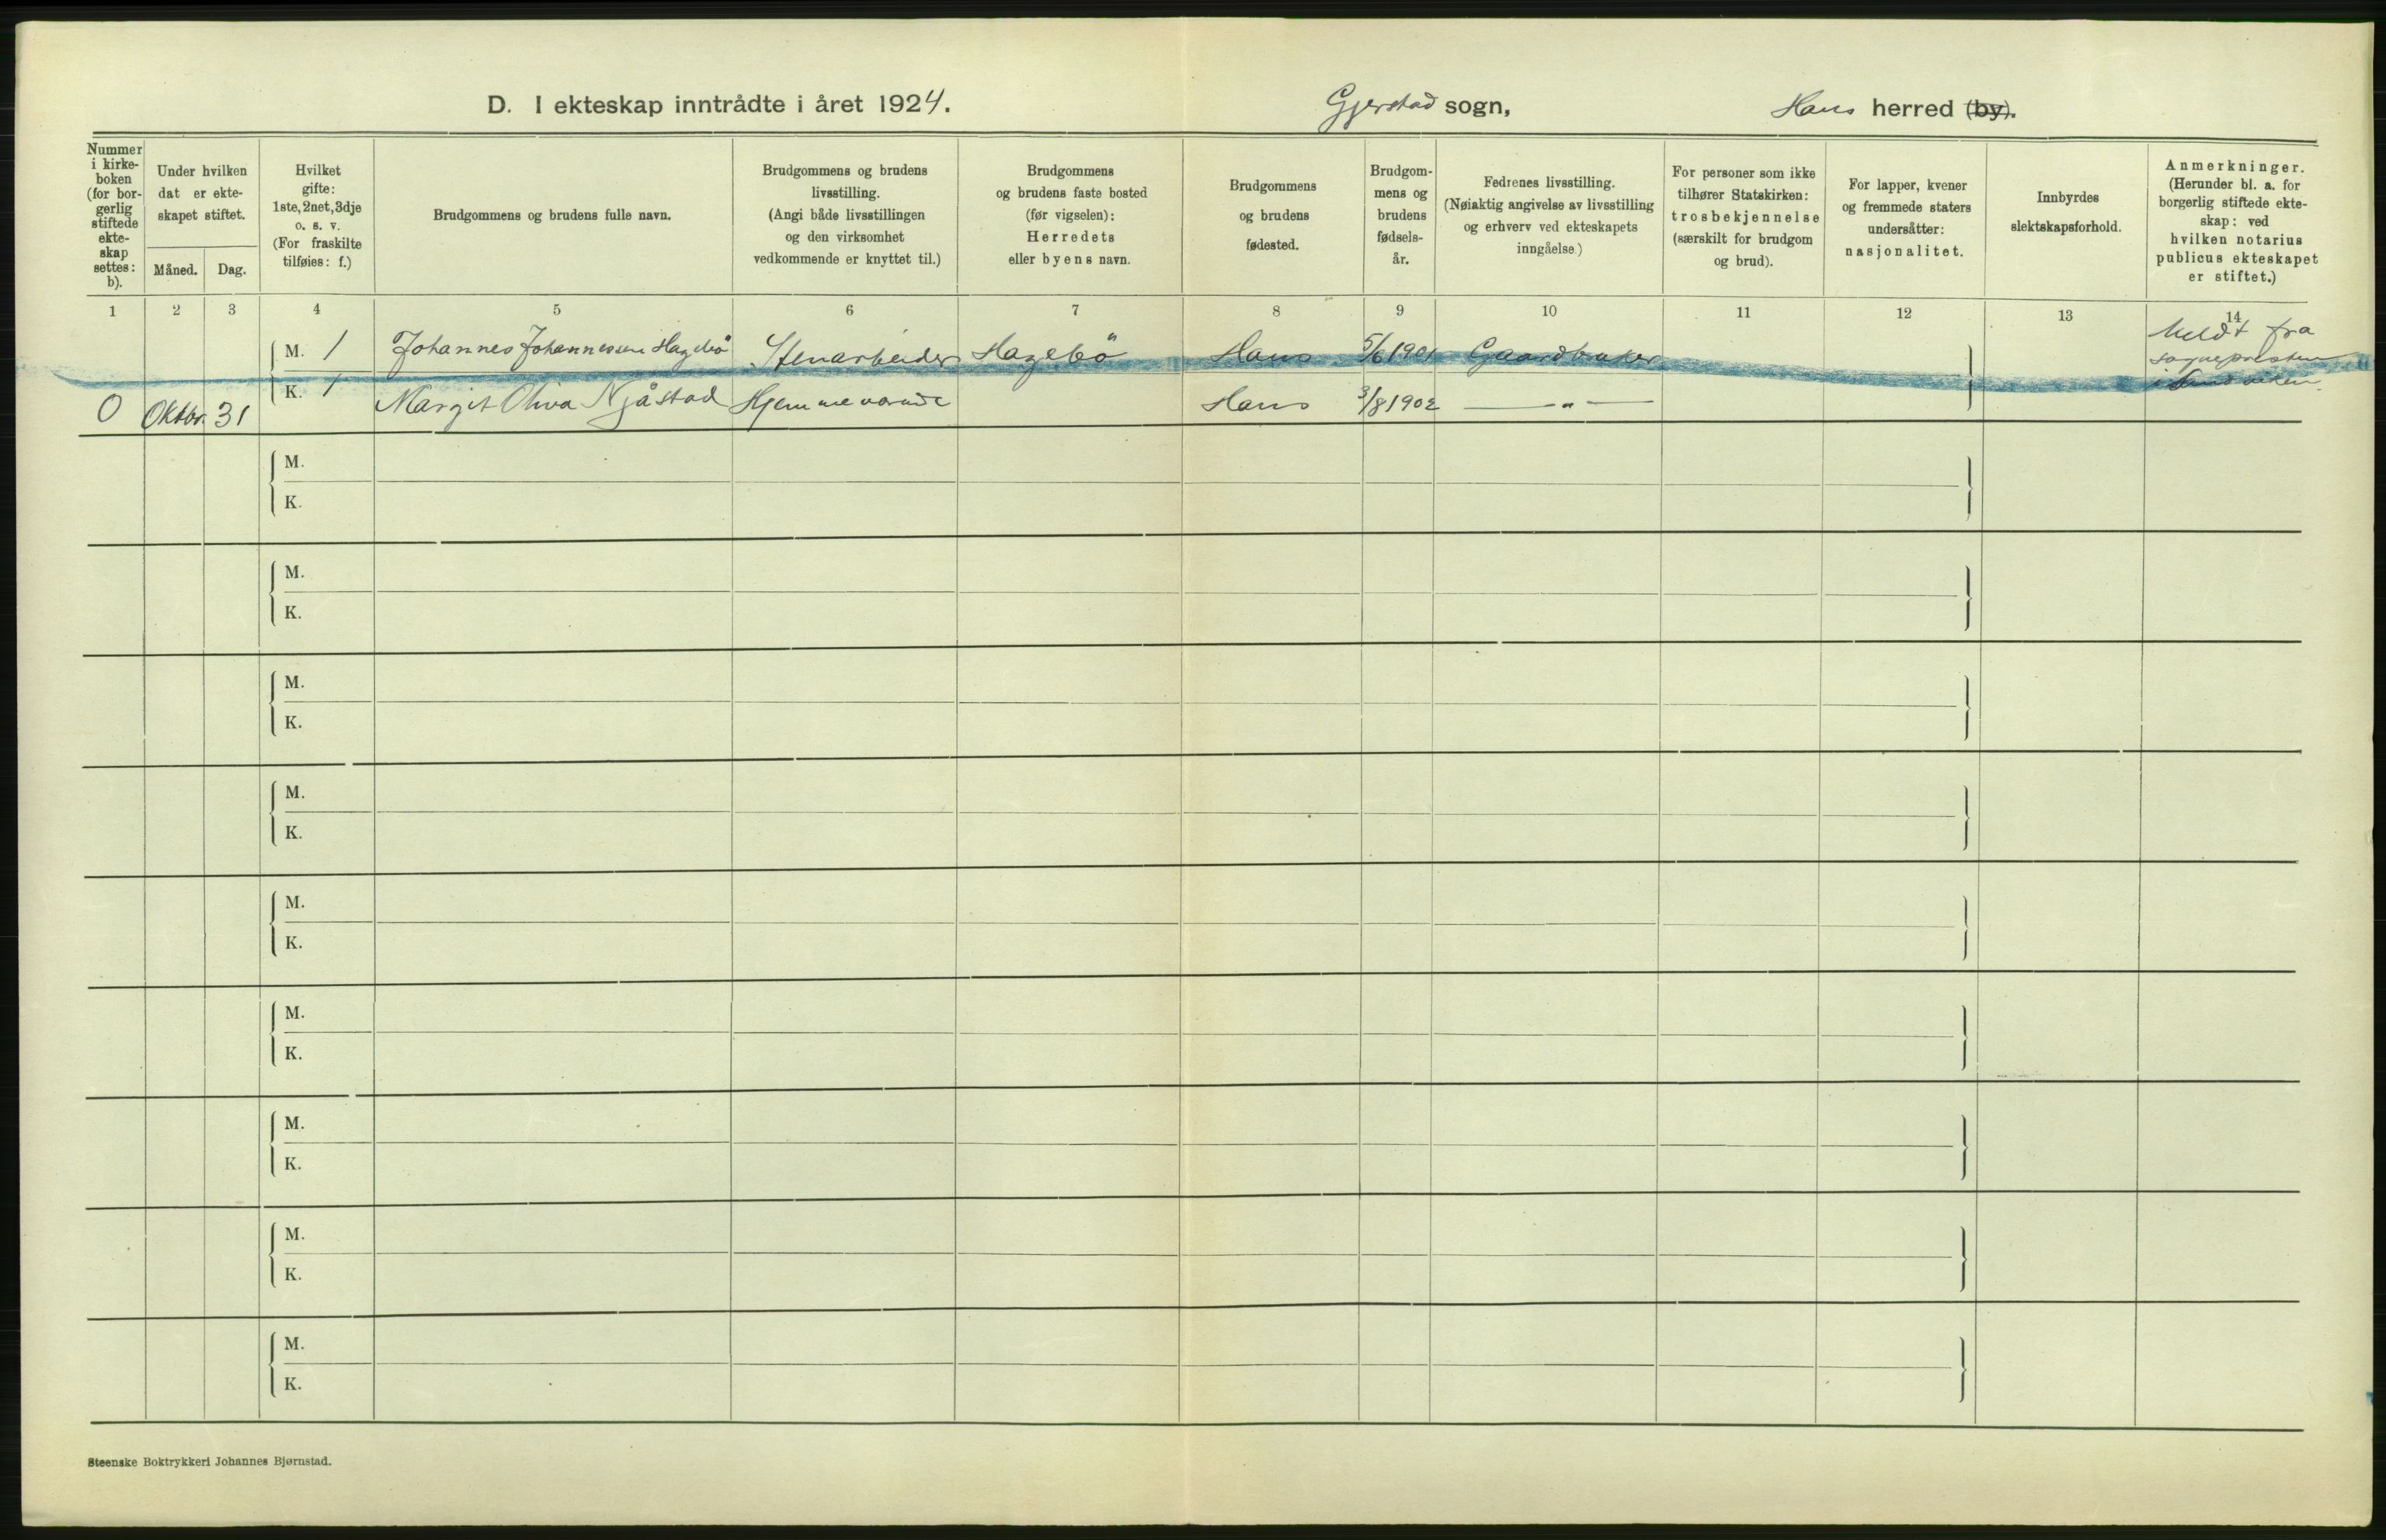 D. I ekteskap inntrådte i året 1924. Gjerstad sogn, Haus herred (by).
Nummer i kirke-boken (for bor-gerlig stiftede ekte-skap settes: b).
Under hvilken dat er ekte-skapet stiftet.
Måned. Dag.
Hvilket gifte: 1ste, 2net, 3dje o. s. v. (For fraskilte tilføies: f.)
Brudgommens og brudens fulle navn.
Brudgommens og brudens livsstilling. (Angi både livsstillingen og den virksomhet vedkommende er knyttet til.)
Brudgommens og brudens faste bosted (før vigselen): Herredets eller byens navn.
Brudgommens og brudens fødested.
Brudgom-mens og brudens fødsels-år.
Fedrenes livsstilling. (Nøiaktig angivelse av livsstilling og erhverv ved ekteskapets inngåelse.)
For personer som ikke tilhører Statskirken: trosbekjennelse (særskilt for brudgom og brud).
For lapper, kvener og fremmede staters undersåtter: nasjonalitet.
Innbyrdes slektskapsforhold.
Anmerkninger. (Herunder bl. a. for borgerlig stiftede ekte-skap: ved hvilken notarius publicus ekteskapet er stiftet.)
1 2 3 4 5 6 7 8 9 10 11 12 13 14
M. 1 Johannes Johannessen Hagebö Stenarbeider Hagebö Haus 5/6 1901 Gaardbruker Meldt fra sognepresten i
0 Oktbr. 31 K. 1 Margit Oliva Njåstad Hjemmeværende Haus 3/8 1902 — „ —
M.
K.
M.
K.
M.
K.
M.
K.
M.
K.
M.
K.
M.
K.
M.
K.
M.
K.
Steenske Boktrykkeri Johannes Bjørnstad.